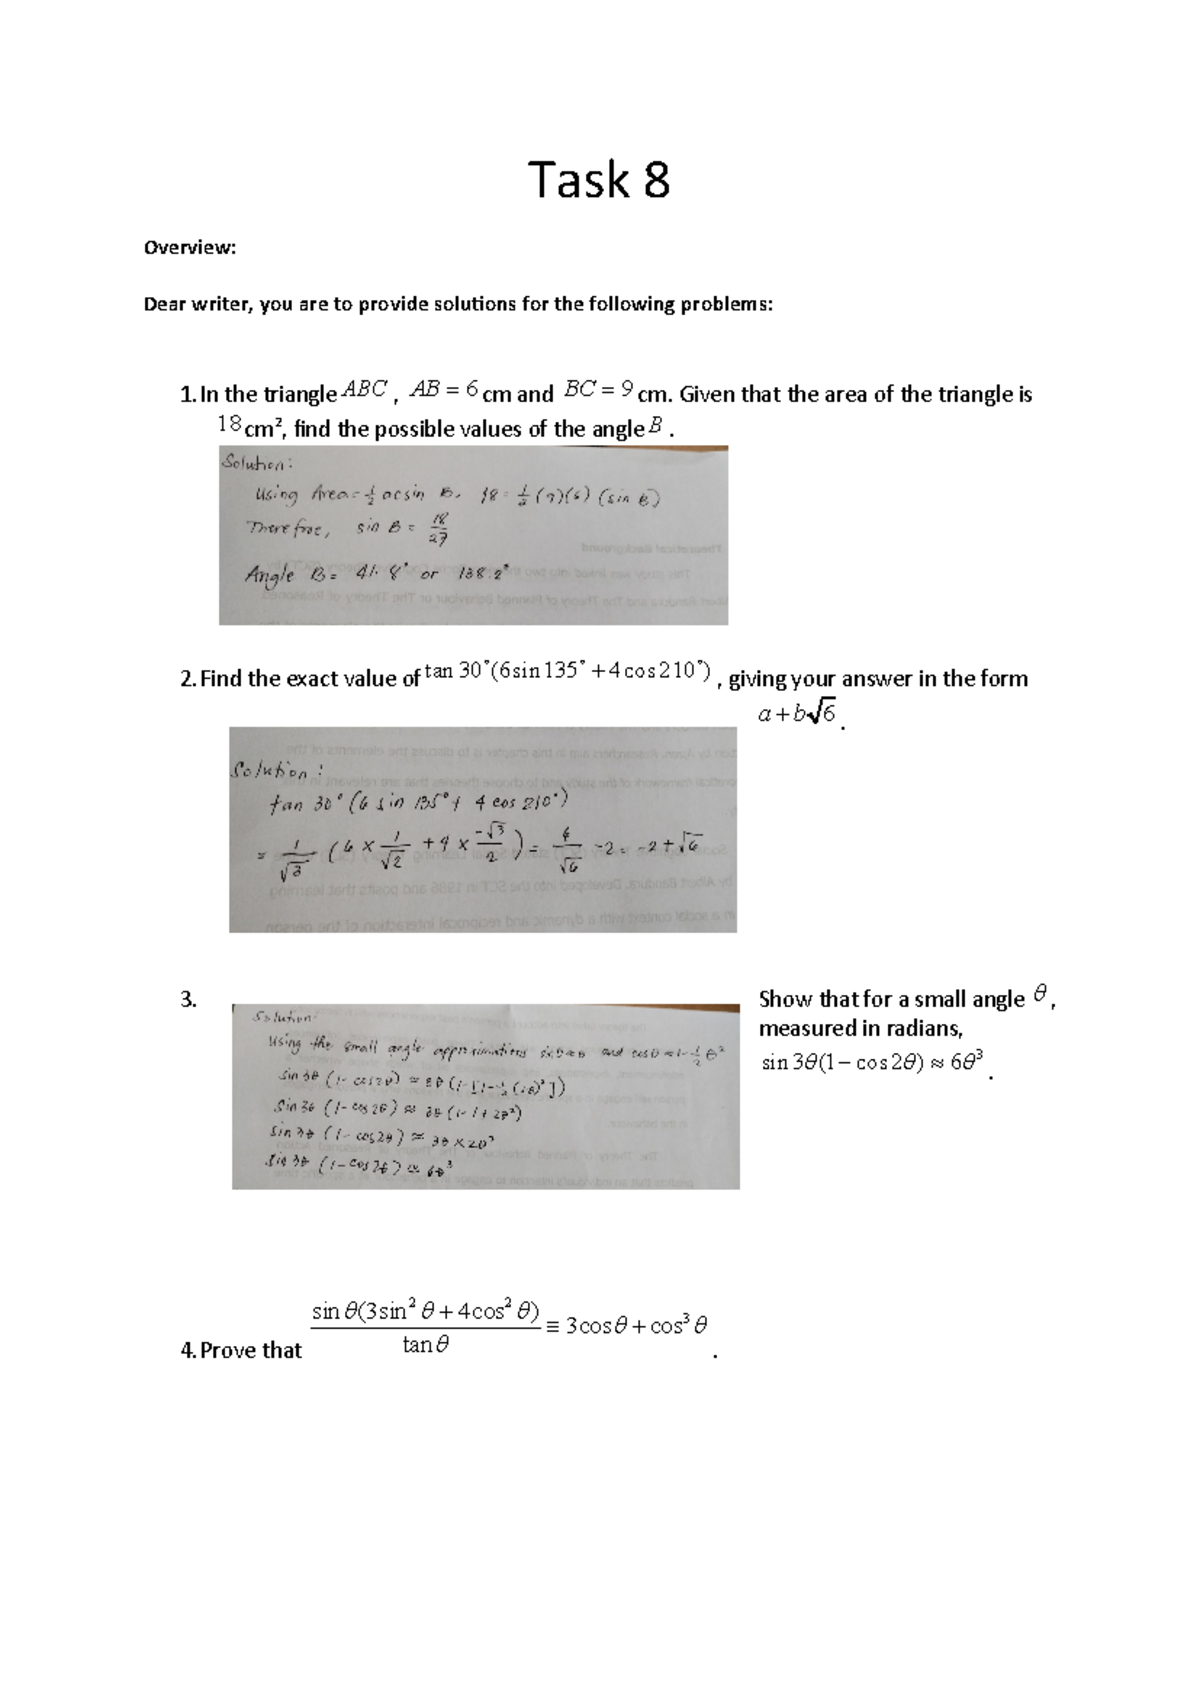 Task 8
Overview:
Dear writer, you are to provide solutions for the following problems:
1. In the triangle ABC , AB = 6 cm and BC = 9 cm. Given that the area of the triangle is
18 cm², find the possible values of the angle B .
Solution:
Using Area = 1/2 acsin B, 18 = 1/2 (9)(6) (sin B)
Therefore, sin B = 18/27
Angle B = 41.8° or 138.2°
2. Find the exact value of tan 30°(6sin135° + 4cos210°) , giving your answer in the form
a + b√6 .
Solution:
tan 30° (6 sin 135° + 4 cos 210°)
= 1/√3 (6 × 1/√2 + 4 × -√3/2) = 6/√6 -2 = -2 + √6
3. Show that for a small angle θ ,
measured in radians,
sin 3θ(1 − cos 2θ) ≈ 6θ³ .
Solution:
Using the small angle approximations sin θ ≈ θ and cos θ ≈ 1 - 1/2 θ²
sin 3θ (1 - cos2θ) ≈ 3θ (1-[1-1/2(2θ)²])
Sin 3θ (1-cos 2θ) ≈ 3θ (1-1+2θ²)
sin 3θ (1-cos2θ) ≈ 3θ × 2θ²
sin 3θ (1-cos2θ) ≈ 6θ³
4. Prove that sin θ(3sin² θ + 4cos² θ)/tan θ ≡ 3cos θ + cos³ θ .